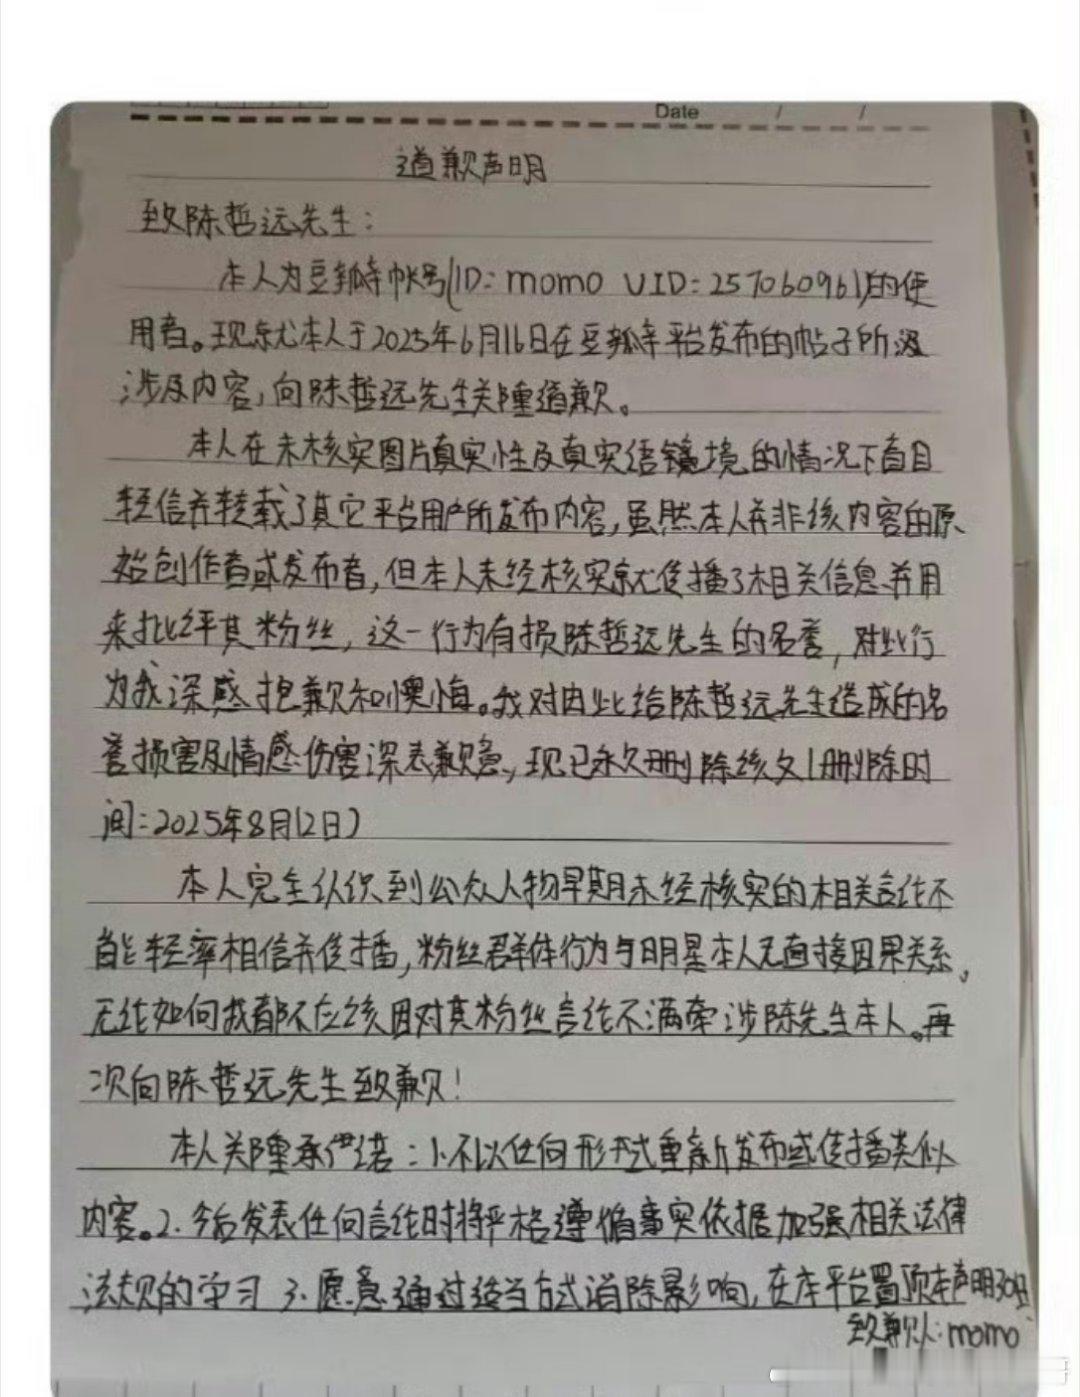 Date / /
道歉声明
致陈哲远先生：
本人为豆瓣帐号(ID：momo UID：257060961)的使
用者。现就本人于2025年6月16日在豆瓣平台发布的帖子所
涉及内容，向陈哲远先生郑重道歉。
本人在未核实图片真实性及真实语境的情况下盲目
轻信并转载了其它平台用户所发布内容，虽然本人并非该内容的原
始创作者或发布者，但本人未经核实就传播了相关信息并用
来批评其粉丝，这一行为有损陈哲远先生的名誉，对此行
为我深感抱歉和懊悔。我对由此给陈哲远先生造成的名
誉损害及情感伤害深表歉意，现已永久删除该文(删除时
间：2025年8月12日)
本人完全认识到公众人物早期未经核实的相关言论不
能轻率相信并传播，粉丝群体行为与明星本人无直接因果关系，
无论如何我都不应该因对其粉丝言论不满牵涉陈先生本人。再
次向陈哲远先生致歉！
本人郑重承诺：1.不以任何形式重新发布或传播类似
内容。2.今后发表任何言论时将严格遵循事实依据加强相关法律
法规的学习 3.愿意通过适当方式消除影响，在本平台置顶本声明30日
致歉人：momo